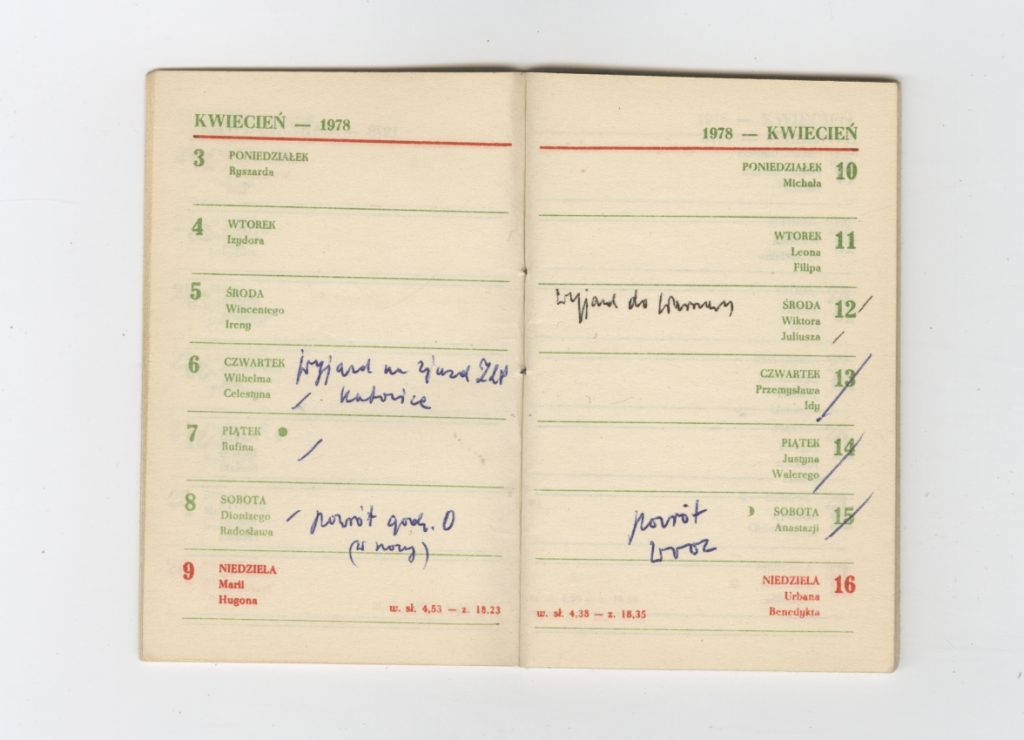 KWIECIEŃ — 1978
3 PONIEDZIAŁEK
Ryszarda
4 WTOREK
Izydora
5 ŚRODA
Wincentego
Ireny
6 CZWARTEK
Wilhelma
Celestyna
wyjazd na zjazd ZLP
Katowice
7 PIĄTEK
Rufina
8 SOBOTA
Dionizego
Radosława
powrót godz. 0
(w nocy)
9 NIEDZIELA
Marii
Hugona
w. sł. 4,53 — z. 18,23
1978 — KWIECIEŃ
PONIEDZIAŁEK 10
Michała
WTOREK 11
Leona
Filipa
wyjazd do Warszawy
ŚRODA 12
Wiktora
Juliusza
CZWARTEK 13
Przemysława
Idy
PIĄTEK 14
Justyna
Walerego
SOBOTA 15
Anastazji
powrót
NIEDZIELA 16
Urbana
Benedykta
w. sł. 4,38 — z. 18,35